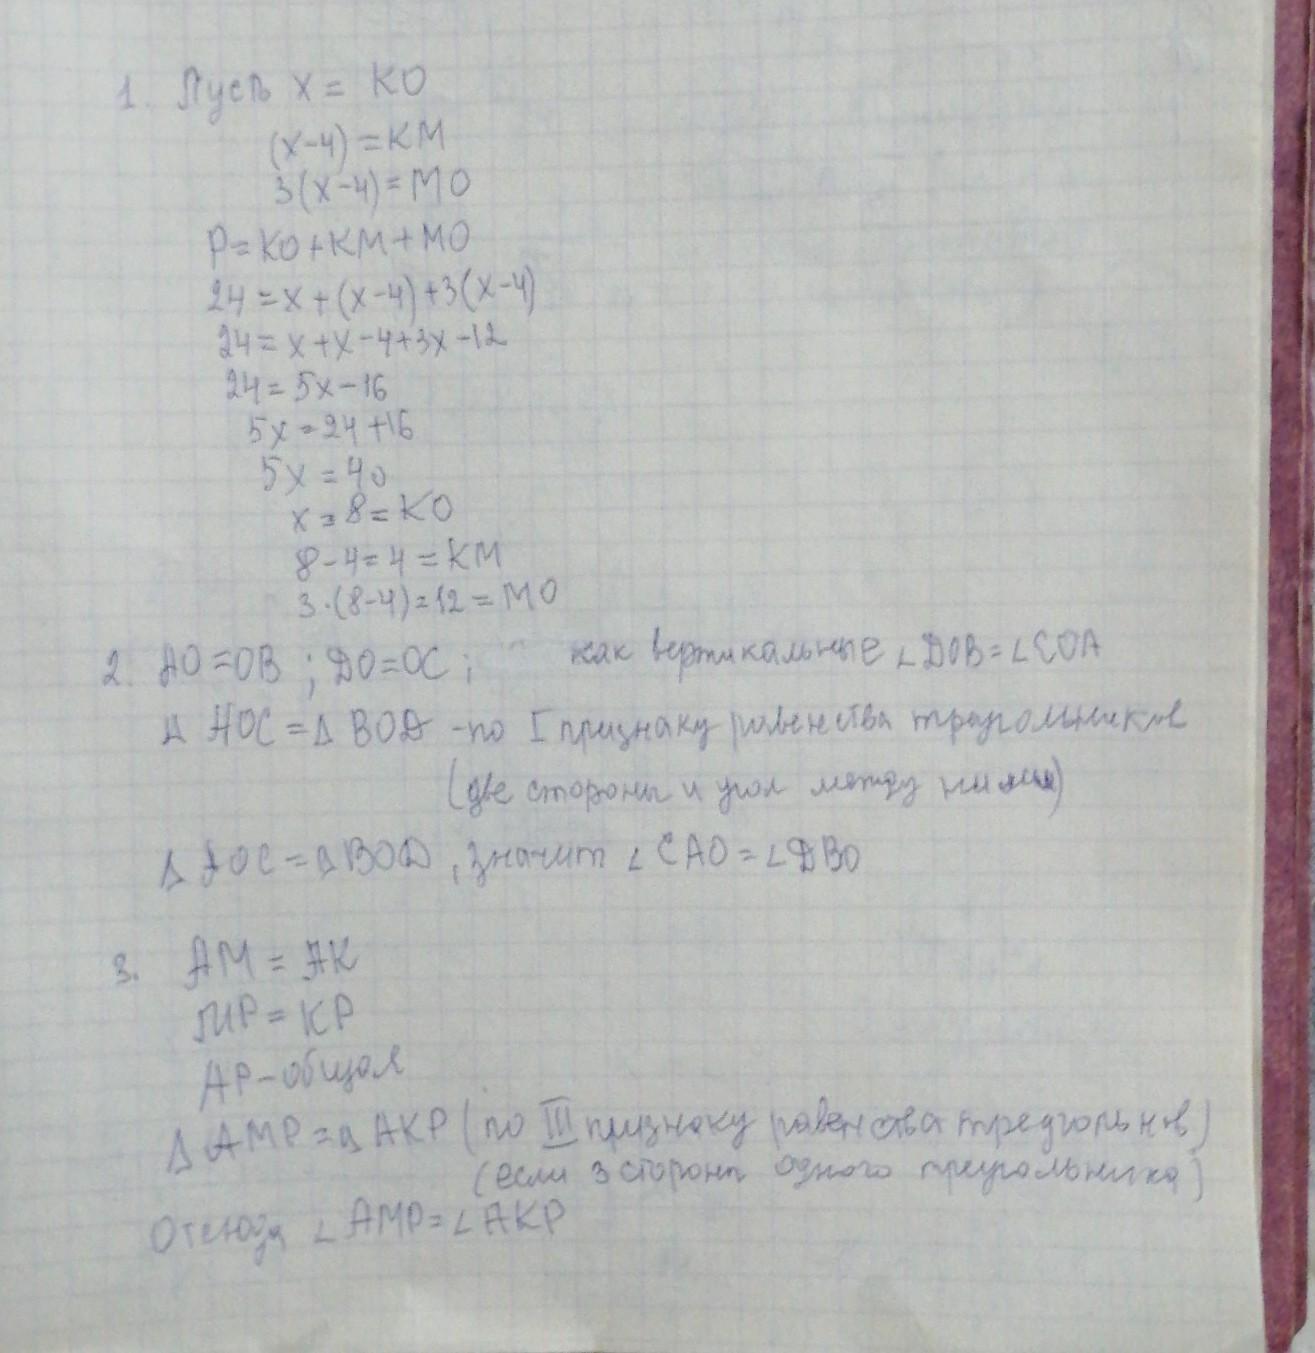 1. Пусть x = KO
(x-4) = KM
3(x-4) = MO
P = KO + KM + MO
24 = x + (x-4) + 3(x-4)
24 = x + x - 4 + 3x - 12
24 = 5x - 16
5x = 24 + 16
5x = 40
x = 8 = KO
8 - 4 = 4 = KM
3·(8-4) = 12 = MO
2. AO = OB ; DO = OC ; как вертикальные ∠DOB = ∠COA
Δ AOC = Δ BOD - по I признаку равенства треугольников
(две стороны и угол между ними)
Δ AOC = Δ BOD, значит ∠CAO = ∠DBO
3. AM = AK
MP = KP
AP - общая
Δ AMP = Δ AKP (по III признаку равенства треугольнов)
(если 3 стороны одного треугольника)
Отсюда ∠AMP = ∠AKP